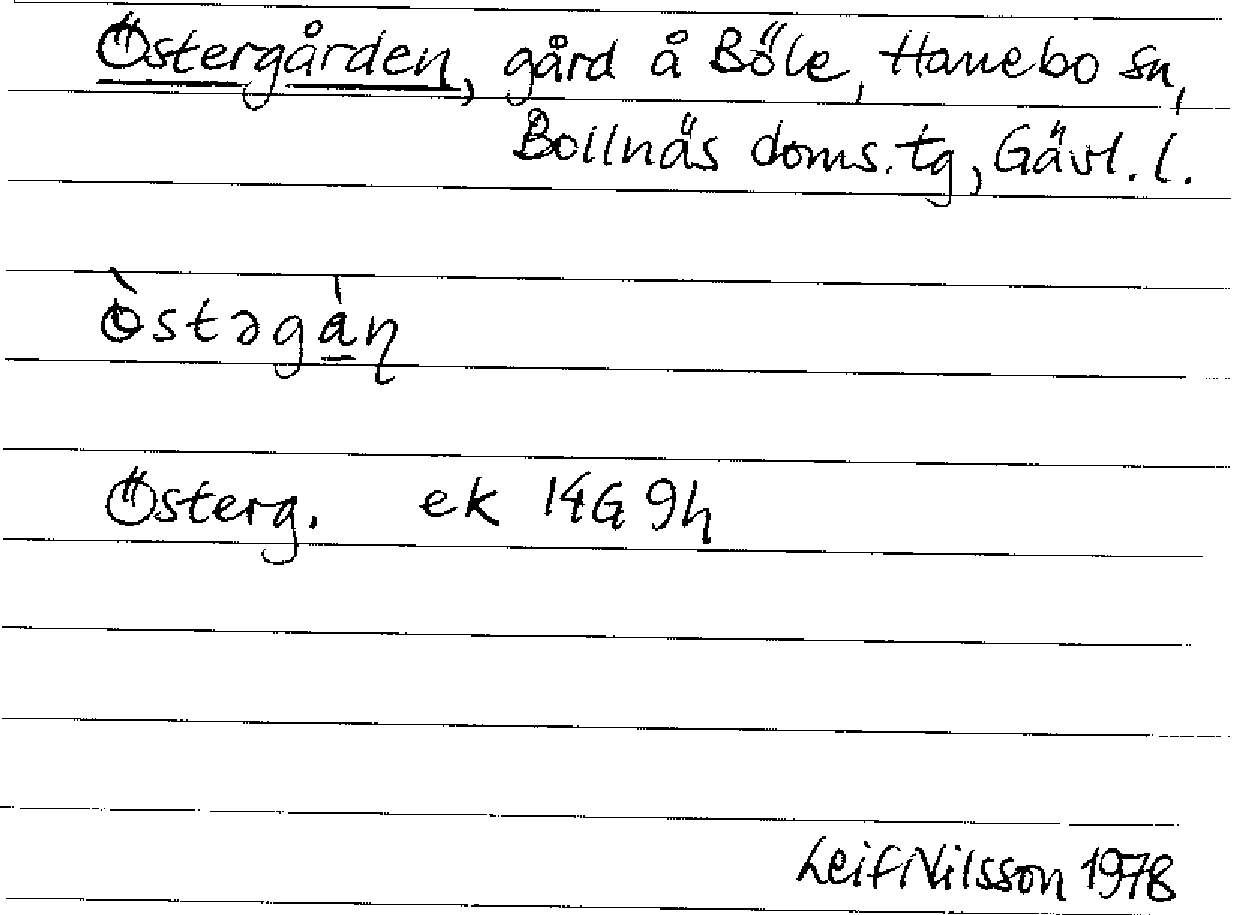 Östergården, gård å Böle, Hanebo sn,
Bollnäs doms.tg, Gävl. l.
Òstəgàṇ
Österg. ek 14G 9h
Leif Nilsson 1978